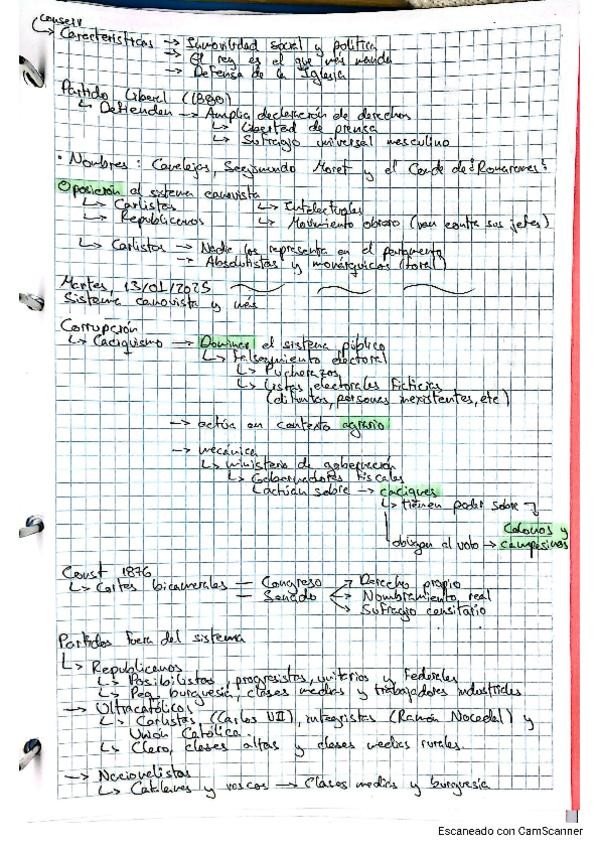 conserv
↳ Características → Inmovilidad social y política
→ El rey es el que más manda
→ Defensa de la Iglesia
Partido Liberal (1880)
↳ Defienden → Amplia declaración de derechos
↳ Libertad de prensa
↳ Sufragio universal masculino
• Nombres: Canalejas, Segismundo Moret y el Conde de Romanones.
Oposición al sistema canovista
↳ Carlistas ↳ Intelectuales
↳ Republicanos ↳ Movimiento obrero (van contra sus jefes)
↳ Carlistas → Nadie los representa en el parlamento
→ Absolutistas y monárquicos (foral)
Martes, 13/01/2025
Sistema canovista y más
Corrupción
↳ Caciquismo → Dominar el sistema público
↳ Falseamiento electoral
↳ Pucherazos
↳ Listas electorales ficticias
(difuntos, personas inexistentes, etc)
→ actúa en contexto agrario
→ mecánica
↳ ministerio de gobernación
↳ Gobernadores fiscales
↳ actúan sobre → caciques
↳ tienen poder sobre
Colonos y
obligan al voto → campesinos
Const 1876
↳ Cortes bicamerales — Congreso Derecho propio
— Senado Nombramiento real
Sufragio censitario
Partidos fuera del sistema
↳ Republicanos
↳ Posibilistas, progresistas, unitarios y Federales
↳ Peq. burguesía, clases medias y trabajadores industriales
→ Ultracatólicos
↳ Carlistas, (Carlos VII), integristas (Ramón Nocedal) y
Unión Católica.
↳ Clero, clases altas y clases medias rurales.
→ Nacionalistas
↳ Catalanes y vascos → Clases medias y burguesía
Escaneado con CamScanner